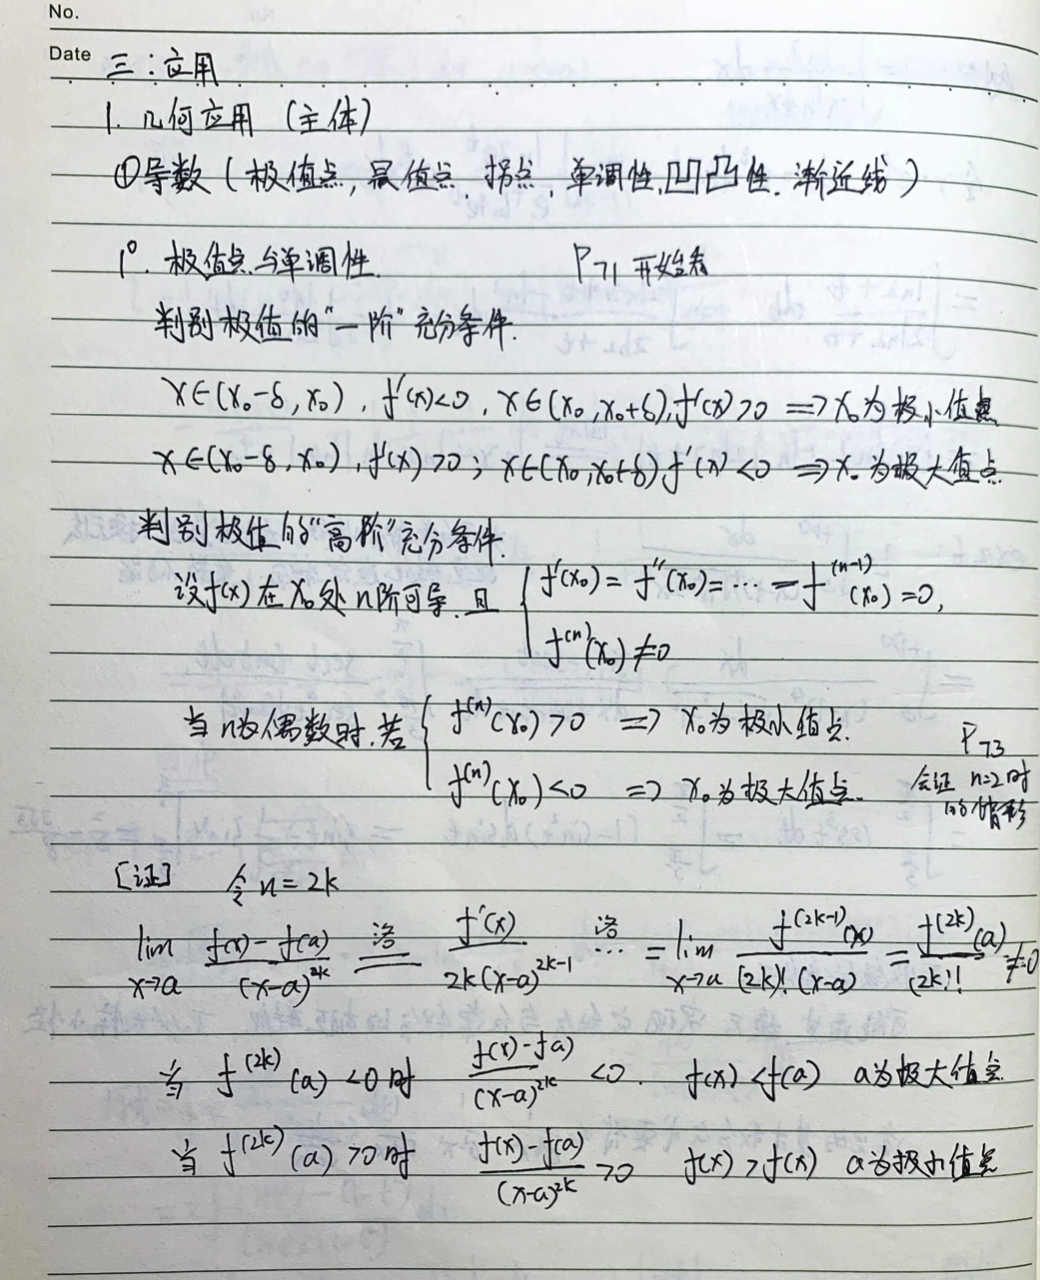 No.
Date
三:应用
1. 几何应用 (主体)
①导数 (极值点, 最值点, 拐点, 单调性, 凹凸性, 渐近线)
1°. 极值点与单调性. P71 开始看
判别极值的"一阶"充分条件.
x∈(x₀-δ, x₀), f'(x)<0, x∈(x₀, x₀+δ), f'(x)>0 ⇒ x₀为极小值点
x∈(x₀-δ, x₀), f'(x)>0; x∈(x₀, x₀+δ) f'(x)<0 ⇒ x₀为极大值点
判别极值的"高阶"充分条件.
设f(x)在x₀处n阶可导, 且 { f'(x₀)=f''(x₀)=⋯=f⁽ⁿ⁻¹⁾(x₀)=0,
f⁽ⁿ⁾(x₀)≠0
当n为偶数时, 若 { f⁽ⁿ⁾(x₀)>0 ⇒ x₀为极小值点.
f⁽ⁿ⁾(x₀)<0 ⇒ x₀为极大值点.
P73
会证 n=2时
的情形
[证] 令n=2k
lim x→a (f(x)-f(a))/(x-a)^2k 洛= f'(x)/2k(x-a)^2k-1 洛⋯ = lim x→a f^(2k-1)(x)/(2k)!(x-a) = f^(2k)(a)/(2k)! ≠0
当 f^(2k)(a)<0时 (f(x)-f(a))/(x-a)^2k <0. f(x)<f(a) a为极大值点
当 f^(2k)(a)>0时 (f(x)-f(a))/(x-a)^2k >0 f(x)>f(x) a为极小值点